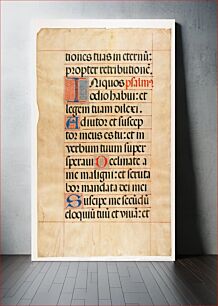 tiones tuas in eternū:
propter retributionē.
INiquos psalm
odio habui: et
legem tuam dilexi.
Adiutor et suscep
tor meus es tu: et in
verbum tuum super
speravi Declinate a
me maligni: et scruta
bor mandata dei mei
Suscipe me secūdū
eloquiū tuū et vivā: et